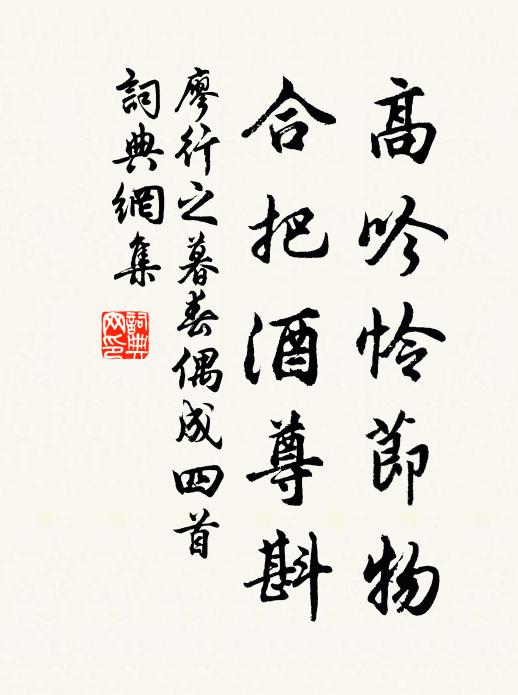 高吟怜節物
合把酒尊斟
廖行之暮春偶成四首
詞典網集
詞典網印